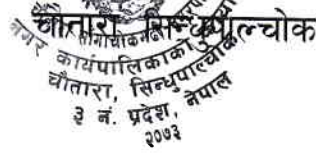 चौतारा, सिन्धुपाल्चोक
नगर कार्यपालिकाको
चौतारा, सिन्धुपाल्चोक
३ नं. प्रदेश, नेपाल
२०७३